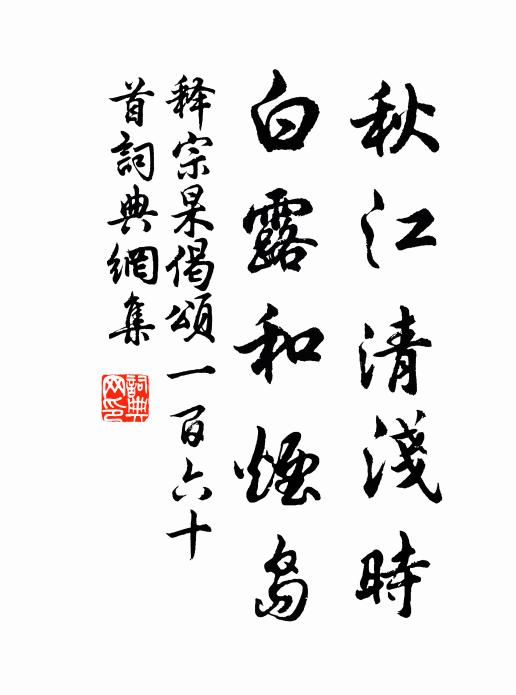 秋江清淺時
白露和煙島
释宗杲偈頌一百六十
首詞典網集
詞典
网印